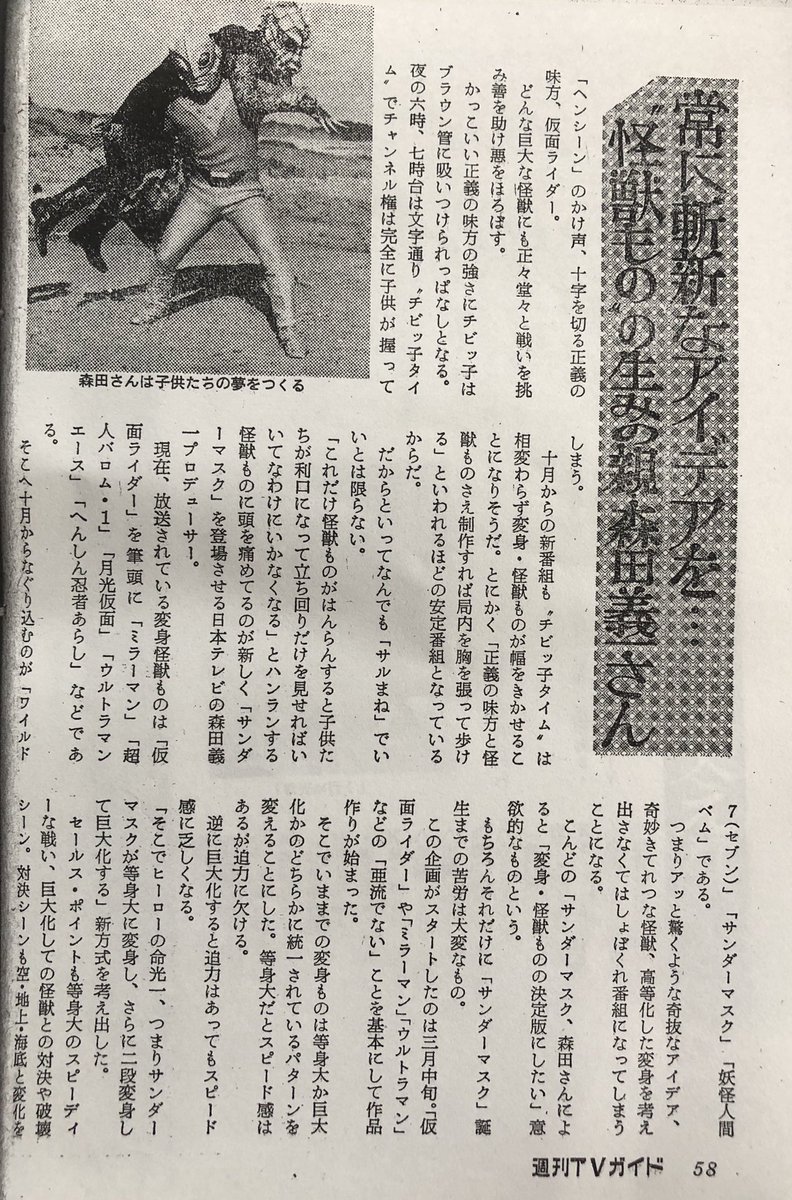 常に斬新なアイデアを…
“怪獣もの”の生みの親・森田義一さん
「ヘンシーン」のかけ声、十字を切る正義の
味方、仮面ライダー。
どんな巨大な怪獣にも正々堂々と戦いを挑
み善を助け悪をほろぼす。
かっこいい正義の味方の強さにチビッ子は
ブラウン管に吸いつけられっぱなしとなる。
夜の六時、七時台は文字通り“チビッ子タイ
ム”でチャンネル権は完全に子供が握って
森田さんは子供たちの夢をつくる
しまう。
十月からの新番組も“チビッ子タイム”は
相変わらず変身・怪獣ものが幅をきかせるこ
とになりそうだ。とにかく「正義の味方と怪
獣ものさえ制作すれば局内を胸を張って歩け
る」といわれるほどの安定番組となっている
からだ。
だからといってなんでも「サルまね」でい
いとは限らない。
「これだけ怪獣ものがはんらんすると子供た
ちが利口になって立ち回りだけを見せればい
いてなわけにいかなくなる」とハンランする
怪獣ものに頭を痛めてるのが新しく「サンダ
ーマスク」を登場させる日本テレビの森田義
一プロデューサー。
現在、放送されている変身怪獣ものは「仮
面ライダー」を筆頭に「ミラーマン」「超
人バロム・1」「月光仮面」「ウルトラマン
エース」「へんしん忍者あらし」などであ
る。
そこへ十月からなぐり込むのが「ワイルド
7（セブン）」「サンダーマスク」「妖怪人間
ベム」である。
つまりアッと驚くような奇抜なアイデア、
奇妙きてれつな怪獣、高等化した変身を考え
出さなくてはしょぼくれ番組になってしまう
ことになる。
こんどの「サンダーマスク、森田さんによ
ると「変身・怪獣ものの決定版にしたい」意
欲的なものという。
もちろんそれだけに「サンダーマスク」誕
生までの苦労は大変なもの。
この企画がスタートしたのは三月中旬。「仮
面ライダー」や「ミラーマン」「ウルトラマン」
などの「亜流でない」ことを基本にして作品
作りが始まった。
そこでいままでの変身ものは等身大か巨大
化かのどちらかに統一されているパターンを
変えることにした。等身大だとスピード感は
あるが迫力に欠ける。
逆に巨大化すると迫力はあってもスピード
感に乏しくなる。
「そこでヒーローの命光一、つまりサンダー
マスクが等身大に変身し、さらに二段変身し
て巨大化する」新方式を考え出した。
セールス・ポイントも等身大のスピーディ
ーな戦い、巨大化しての怪獣との対決や破壊
シーン。対決シーンも空・地上・海底と変化を
週刊TVガイド 58